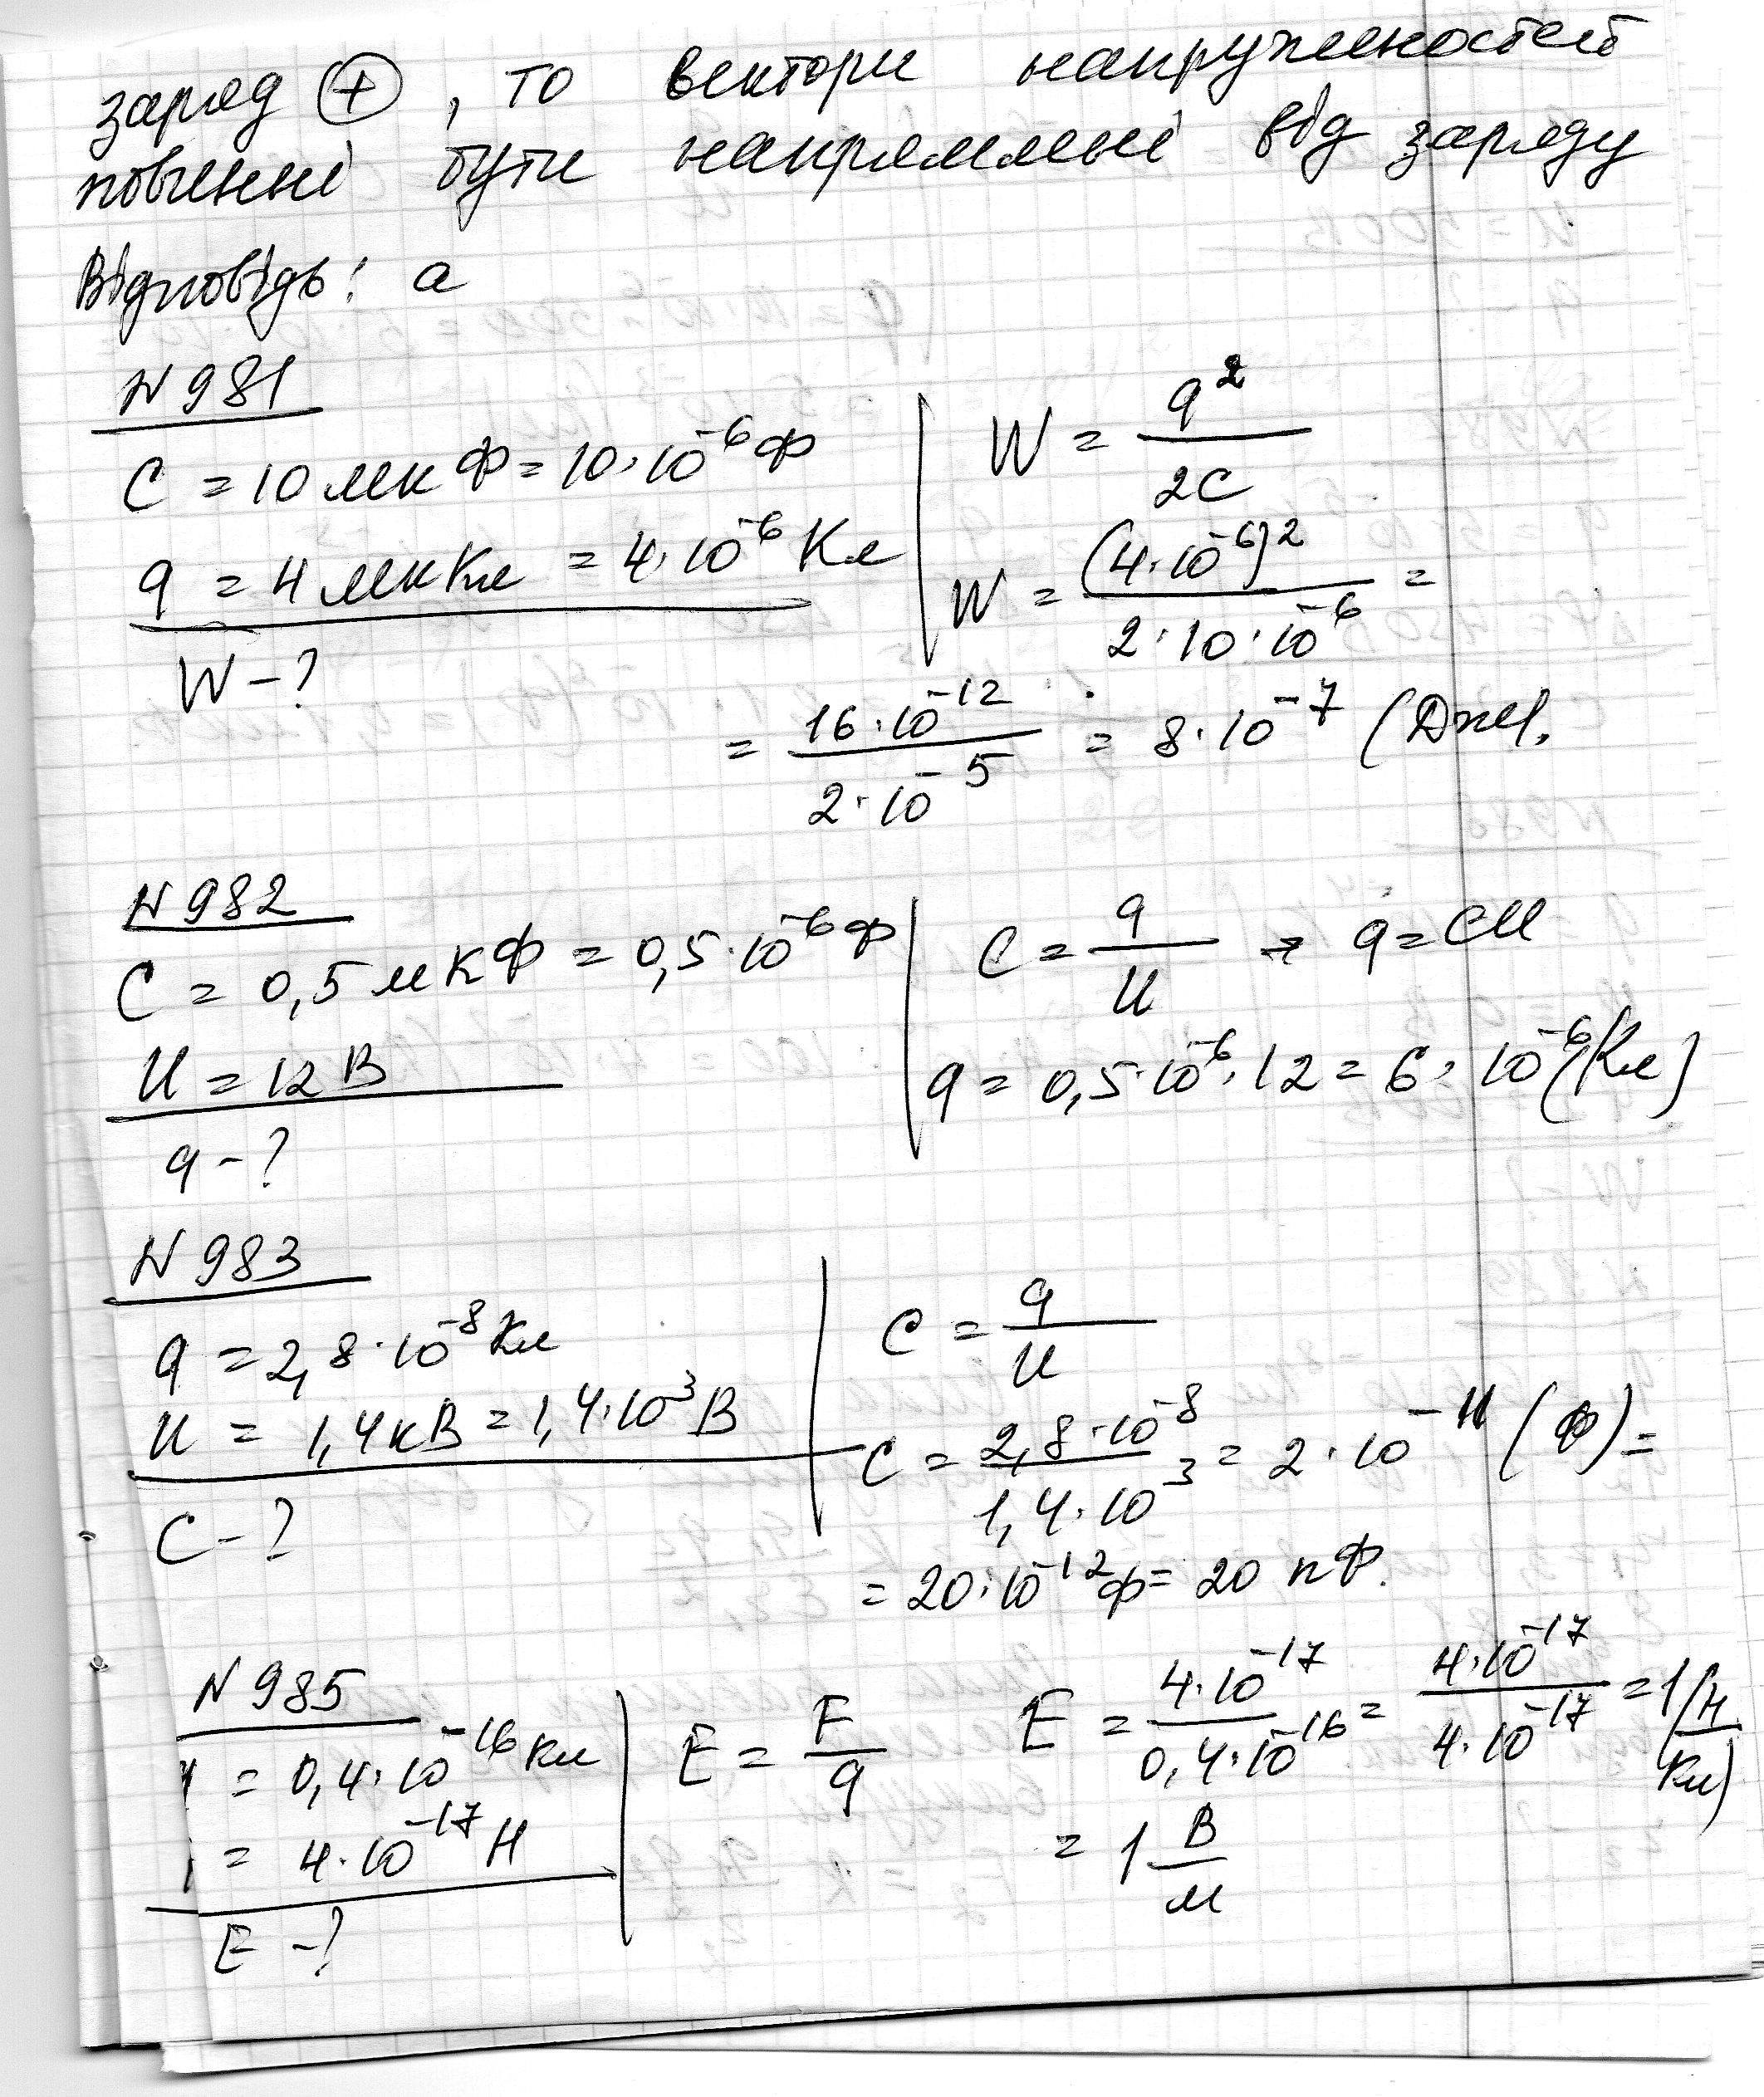 заряд ⊕, то вектори напруженостей
повинні бути напрямлені від заряду
Відповідь: а
N 981
C = 10 мкФ = 10·10⁻⁶ Ф
q = 4 мкКл = 4·10⁻⁶ Кл
W - ?
W = q²/2C
W = (4·10⁻⁶)²/2·10·10⁻⁶ =
= 16·10⁻¹²/2·10⁻⁵ = 8·10⁻⁷ (Дж).
N 982
C = 0,5 мкФ = 0,5·10⁻⁶ Ф
U = 12 В
q - ?
C = q/U → q = CU
q = 0,5·10⁻⁶·12 = 6·10⁻⁶ (Кл)
N 983
q = 2,8·10⁻⁸ Кл
U = 1,4 кВ = 1,4·10³ В
C - ?
C = q/U
C = 2,8·10⁻⁸/1,4·10³ = 2·10⁻¹¹ (Ф) =
= 20·10⁻¹² Ф = 20 пФ.
N 985
= 0,4·10⁻¹⁶ Кл
= 4·10⁻¹⁷ Н
E - ?
E = F/q
E = 4·10⁻¹⁷/0,4·10⁻¹⁶ = 4·10⁻¹⁷/4·10⁻¹⁷ = 1 (Н/Кл)
= 1 В/м